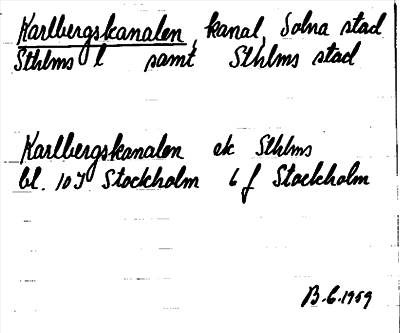 Karlbergskanalen, kanal, Solna stad
Sthlms l samt Sthlms stad
Karlbergskanalen ek Sthlms
bl. 10I Stockholm 6 f Stockholm
B.C.1959